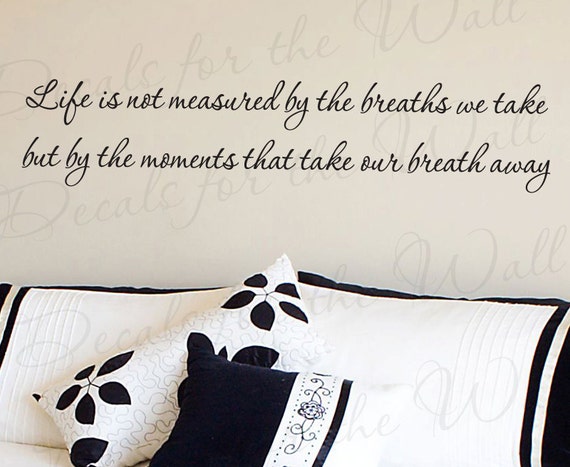 Decals for the Wall
Life is not measured by the breaths we take
but by the moments that take our breath away
Decals for the Wall
Decals for the Wall
Decals for the Wall